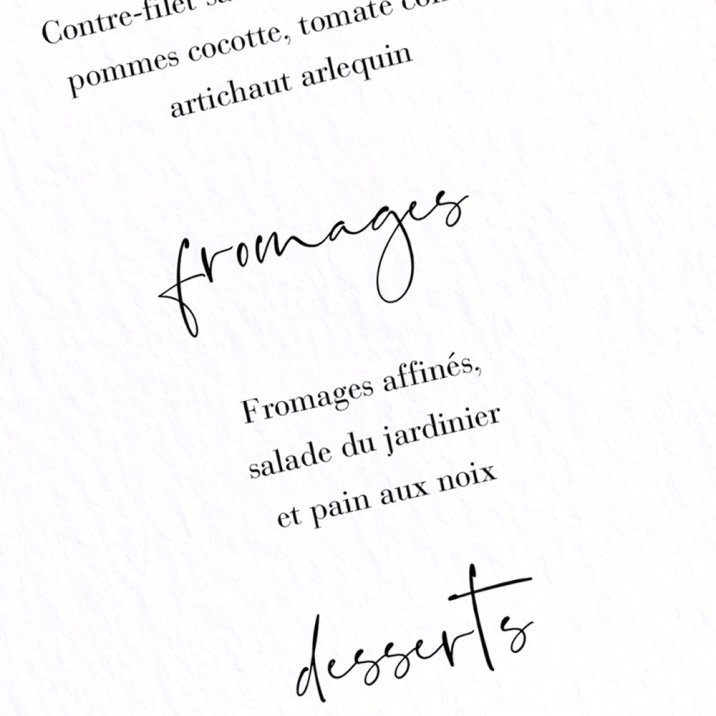 Contre-filet
pommes cocotte, tomate
artichaut arlequin
fromages
Fromages affinés,
salade du jardinier
et pain aux noix
desserts